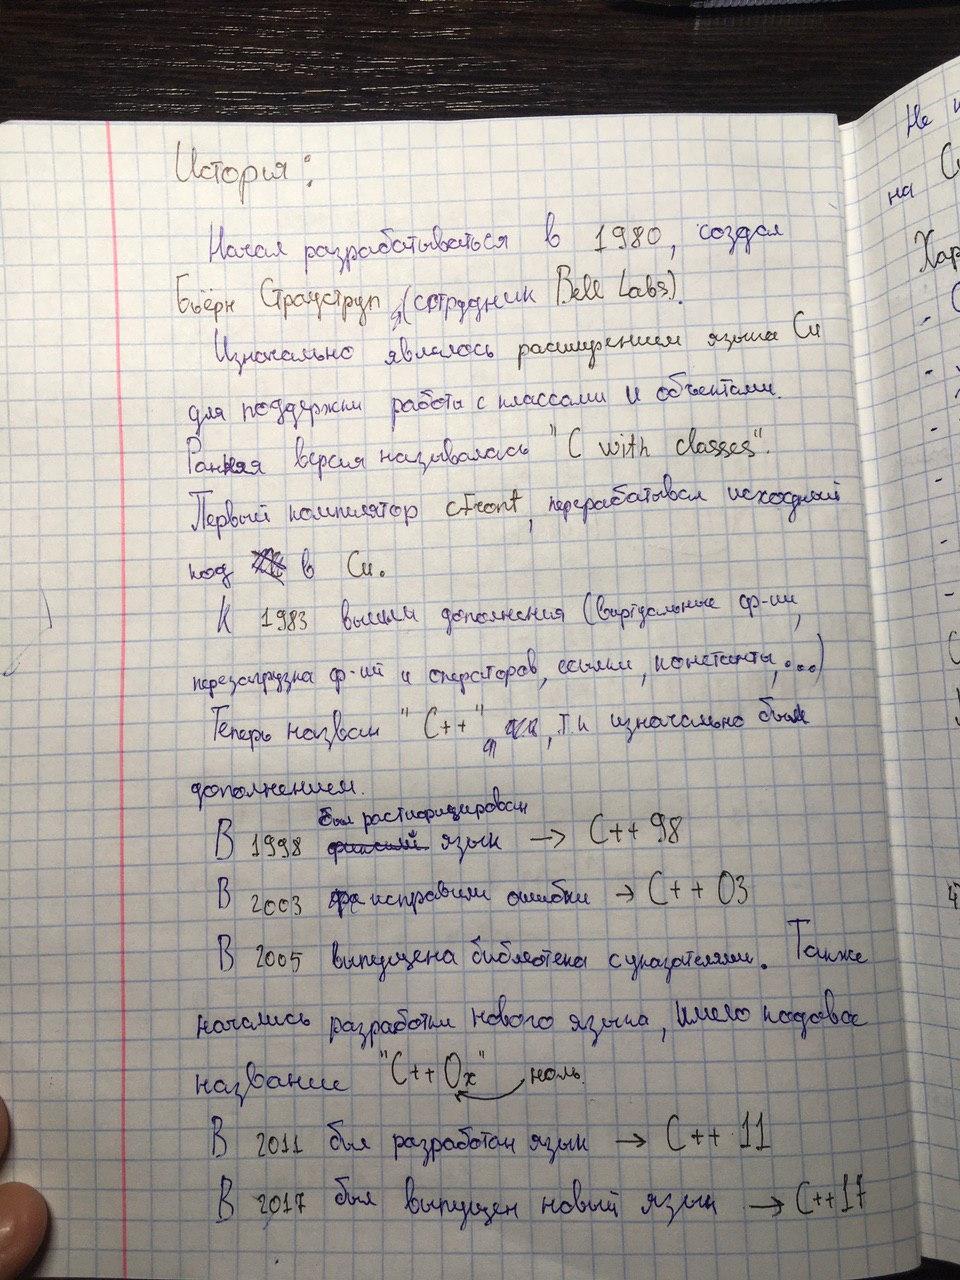 История:
Начал разрабатываться в 1980, создал
Бьёрн Страуструп (сотрудник Bell Labs).
Изначально являлось расширением языка Си
для поддержки работы с классами и объектами.
Ранняя версия называлась "C with classes".
Первый компилятор cFront, перерабатывал исходный
код в Си.
К 1983 вышли дополнения (виртуальные ф-ии,
перезагрузка ф-ий и операторов, ссылки, константы,...)
Теперь назван "C++", т.к изначально был
дополнением.
был растифицирован
В 1998 язык → C++ 98
В 2003 исправили ошибки → C++ 03
В 2005 выпущена библиотека с указателями. Также
начались разработки нового языка, имело кодовое
название "C++0x" ноль.
В 2011 был разработан язык → C++ 11
В 2017 был выпущен новый язык → C++17
Не
на
Хар